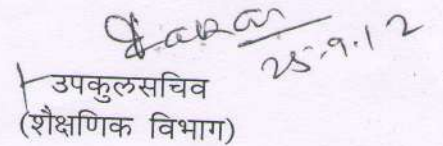 25.9.12
उपकुलसचिव
(शैक्षणिक विभाग)